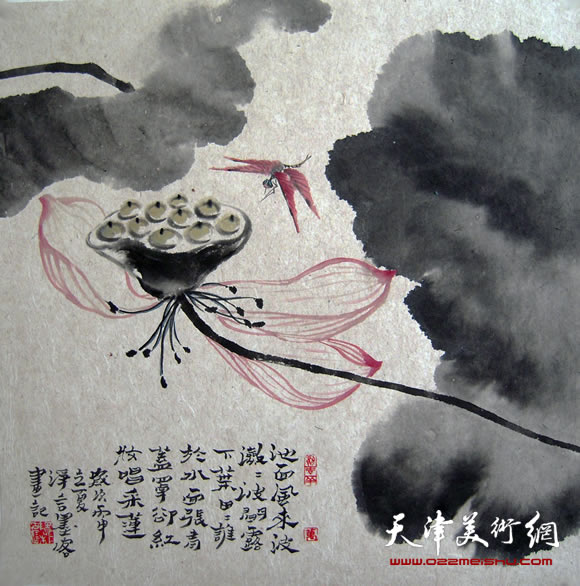 池面風來波
瀲〻波間露
下葉田〻誰
於水面張青
蓋罩卻紅
妝唱采蓮
歲次丙申
立夏
澤言墨客
畫記
天津美術網
www.022meishu.com